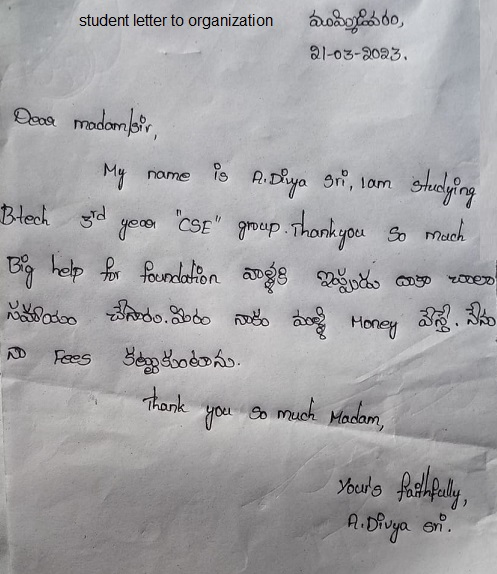 student letter to organization
మామిళ్ళదివరం,
21-03-2023.
Dear madam/sir,
My name is A.Divya Sri, Iam studying
Btech 3rd year "CSE" group. Thankyou so much
Big help for foundation వాళ్ళకి ఇప్పుడు నాకు చాలా
సహాయం చేసారు. మీరు నాకు మళ్ళీ Money వేస్తే. నేను
నా Fees కట్టుకుంటాను.
Thank you so much Madam,
Your's faithfully,
A.Divya Sri.